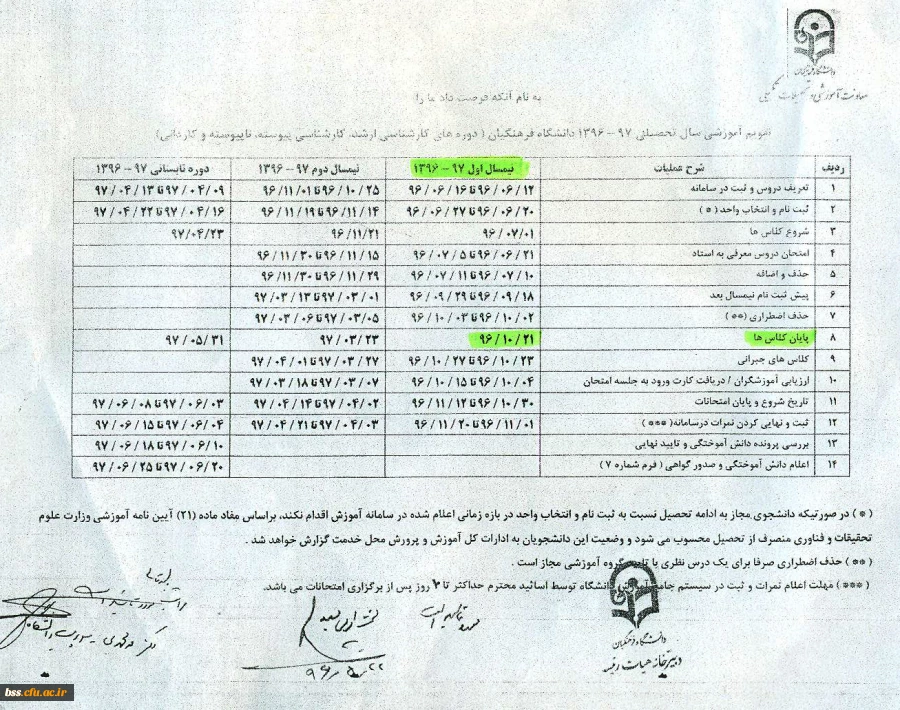 دانشگاه فرهنگیان
معاونت آموزشی و تحصیلات تکمیلی
به نام آنکه فرصت داد ما را
تقویم آموزشی سال تحصیلی ۹۷ – ۱۳۹۶ دانشگاه فرهنگیان ( دوره های کارشناسی ارشد، کارشناسی پیوسته، ناپیوسته و کاردانی)
ردیف شرح عملیات نیمسال اول ۹۷ – ۱۳۹۶ نیمسال دوم ۹۷ – ۱۳۹۶ دوره تابستانی ۹۷ – ۱۳۹۶
۱ تعریف دروس و ثبت در سامانه ۹۶/۰۶/۱۲ تا ۹۶/۰۶/۱۶ ۹۶/۱۰/۲۵ تا ۹۶/۱۱/۰۱ ۹۷/۰۴/۰۹ تا ۹۷/۰۴/۱۳
۲ ثبت نام و انتخاب واحد (*) ۹۶/۰۶/۲۰ تا ۹۶/۰۶/۲۷ ۹۶/۱۱/۱۴ تا ۹۶/۱۱/۱۹ ۹۷/۰۴/۱۶ تا ۹۷/۰۴/۲۲
۳ شروع کلاس ها ۹۶/۰۷/۰۱ ۹۶/۱۱/۲۱ ۹۷/۰۴/۲۳
۴ امتحان دروس معرفی به استاد ۹۶/۰۶/۲۱ تا ۹۶/۰۷/۰۵ ۹۶/۱۱/۱۵ تا ۹۶/۱۱/۳۰
۵ حذف و اضافه ۹۶/۰۷/۱۰ تا ۹۶/۰۷/۱۱ ۹۶/۱۱/۲۹ تا ۹۶/۱۱/۳۰
۶ پیش ثبت نام نیمسال بعد ۹۶/۰۹/۱۸ تا ۹۶/۰۹/۲۹ ۹۷/۰۳/۰۱ تا ۹۷/۰۳/۱۳
۷ حذف اضطراری (**) ۹۶/۱۰/۰۲ تا ۹۶/۱۰/۰۳ ۹۷/۰۳/۰۵ تا ۹۷/۰۳/۰۶
۸ پایان کلاس ها ۹۶/۱۰/۲۱ ۹۷/۰۳/۲۳ ۹۷/۰۵/۳۱
۹ کلاس های جبرانی ۹۶/۱۰/۲۳ تا ۹۶/۱۰/۲۷ ۹۷/۰۳/۲۷ تا ۹۷/۰۴/۰۱
۱۰ ارزیابی آموزشگران / دریافت کارت ورود به جلسه امتحان ۹۶/۱۰/۰۴ تا ۹۶/۱۰/۱۵ ۹۷/۰۳/۰۷ تا ۹۷/۰۳/۱۸
۱۱ تاریخ شروع و پایان امتحانات ۹۶/۱۰/۳۰ تا ۹۶/۱۱/۱۲ ۹۷/۰۴/۰۲ تا ۹۷/۰۴/۱۴ ۹۷/۰۶/۰۳ تا ۹۷/۰۶/۰۸
۱۲ ثبت و نهایی کردن نمرات درسامانه (***) ۹۶/۱۱/۰۱ تا ۹۶/۱۱/۲۰ ۹۷/۰۴/۰۳ تا ۹۷/۰۴/۲۱ ۹۷/۰۶/۰۴ تا ۹۷/۰۶/۱۵
۱۳ بررسی پرونده دانش آموختگی و تایید نهایی ۹۷/۰۶/۱۰ تا ۹۷/۰۶/۱۸
۱۴ اعلام دانش آموختگی و صدور گواهی ( فرم شماره ۷ ) ۹۷/۰۶/۲۰ تا ۹۷/۰۶/۲۵
( * ) در صورتیکه دانشجوی مجاز به ادامه تحصیل نسبت به ثبت نام و انتخاب واحد در بازه زمانی اعلام شده در سامانه آموزش اقدام نکند، براساس مفاد ماده (۲۱) آیین نامه آموزشی وزارت علوم
تحقیقات و فناوری منصرف از تحصیل محسوب می شود و وضعیت این دانشجویان به ادارات کل آموزش و پرورش محل خدمت گزارش خواهد شد .
( ** ) حذف اضطراری صرفا برای یک درس نظری با تایید گروه آموزشی مجاز است .
( *** ) مهلت اعلام نمرات و ثبت در سیستم جامع دانشگاه توسط اساتید محترم حداکثر تا ۱۰ روز پس از برگزاری امتحانات می باشد.
دانشگاه فرهنگیان
دبیرخانه هیات رئیسه
bss.cfu.ac.ir